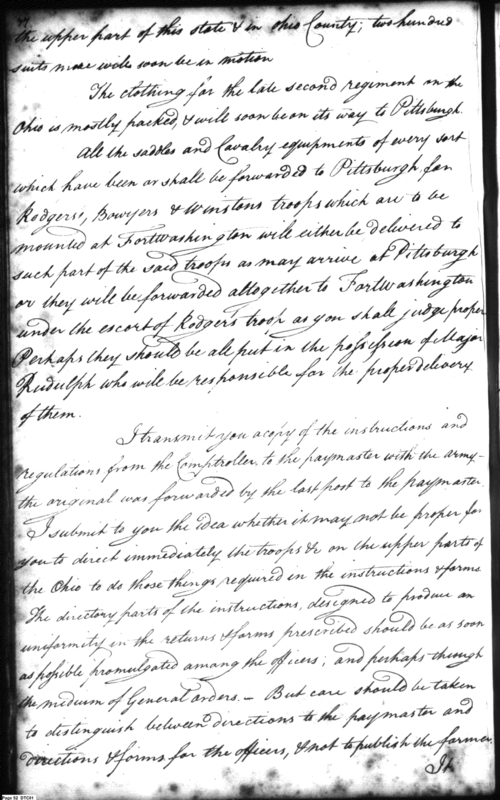 the upper part of this state & in Ohio County; two hundred
suits more will soon be in motion
The clothing for the late second regiment on the
Ohio is mostly packed, & will soon be on its way to Pittsburgh
All the saddles and Cavalry equipments of every sort
which have been or shall be forwarded to Pittsburgh for
Rodgers, Bowyers & Winstons troops which are to be
mounted at Fort washington will either be delivered to
such part of the said troops as may arrive at Pittsburgh
or they will be forwarded altogether to Fort washington
under the escort of Rodgers troop as you shall judge proper
Perhaps they should be all put in the possession of Major
Rudulph who will be responsible for the proper delivery
of them.
I transmit you a copy of the instructions and
regulations from the Comptroller to the paymaster with the army—
the original was forwarded by the last post to the paymaster.
I submit to you the idea whether it may not be proper for
you to direct immediately the troops &c on the upper parts of
the Ohio to do those things required in the instructions & forms
The directory parts of the instructions, designed to produce an
uniformity in the returns & forms prescribed should be as soon
as possible promulgated among the officers; and perhaps through
the medium of General orders.— But care should be taken
to distinguish between directions to the paymaster and
directions & forms for the officers, & not to publish the former.
It
Page 52 DTC01